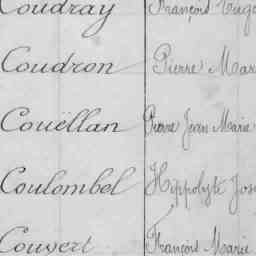 Coudray François Eug
Coudron Pierre Mar
Couëllan Pierre Jean Marie
Coulombel Hippolyte Jos
Couvert François Marie